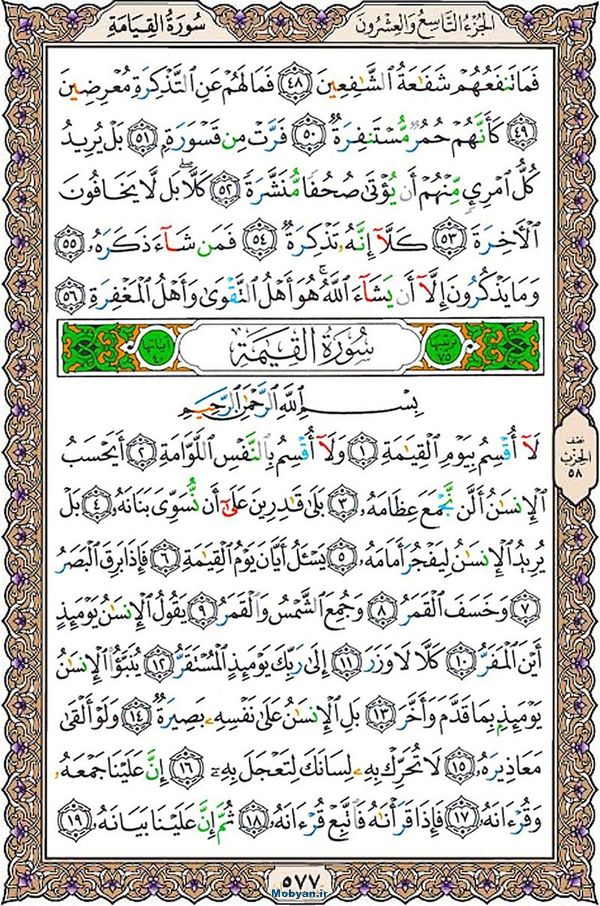 الجزء التاسع والعشرون
سورة القيامة
فَمَا تَنفَعُهُمْ شَفَاعَةُ الشَّافِعِينَ ٤٨ فَمَا لَهُمْ عَنِ التَّذْكِرَةِ مُعْرِضِينَ
٤٩ كَأَنَّهُمْ حُمُرٌ مُّسْتَنفِرَةٌ ٥٠ فَرَّتْ مِن قَسْوَرَةٍ ٥١ بَلْ يُرِيدُ
كُلُّ امْرِئٍ مِّنْهُمْ أَن يُؤْتَىٰ صُحُفًا مُّنَشَّرَةً ٥٢ كَلَّا ۖ بَل لَّا يَخَافُونَ
الْآخِرَةَ ٥٣ كَلَّا إِنَّهُ تَذْكِرَةٌ ٥٤ فَمَن شَاءَ ذَكَرَهُ ٥٥
وَمَا يَذْكُرُونَ إِلَّا أَن يَشَاءَ اللَّهُ ۚ هُوَ أَهْلُ التَّقْوَىٰ وَأَهْلُ الْمَغْفِرَةِ ٥٦
ترتيبها ٧٥ سُورَةُ الْقِيٰمَةِ آياتها ٤٠
بِسْمِ اللَّهِ الرَّحْمَٰنِ الرَّحِيمِ
لَا أُقْسِمُ بِيَوْمِ الْقِيَامَةِ ١ وَلَا أُقْسِمُ بِالنَّفْسِ اللَّوَّامَةِ ٢ أَيَحْسَبُ
الْإِنسَانُ أَلَّن نَّجْمَعَ عِظَامَهُ ٣ بَلَىٰ قَادِرِينَ عَلَىٰ أَن نُّسَوِّيَ بَنَانَهُ ٤ بَلْ
يُرِيدُ الْإِنسَانُ لِيَفْجُرَ أَمَامَهُ ٥ يَسْئَلُ أَيَّانَ يَوْمُ الْقِيَامَةِ ٦ فَإِذَا بَرِقَ الْبَصَرُ
٧ وَخَسَفَ الْقَمَرُ ٨ وَجُمِعَ الشَّمْسُ وَالْقَمَرُ ٩ يَقُولُ الْإِنسَانُ يَوْمَئِذٍ
أَيْنَ الْمَفَرُّ ١٠ كَلَّا لَا وَزَرَ ١١ إِلَىٰ رَبِّكَ يَوْمَئِذٍ الْمُسْتَقَرُّ ١٢ يُنَبَّؤُا الْإِنسَانُ
يَوْمَئِذٍ بِمَا قَدَّمَ وَأَخَّرَ ١٣ بَلِ الْإِنسَانُ عَلَىٰ نَفْسِهِ بَصِيرَةٌ ١٤ وَلَوْ أَلْقَىٰ
مَعَاذِيرَهُ ١٥ لَا تُحَرِّكْ بِهِ لِسَانَكَ لِتَعْجَلَ بِهِ ١٦ إِنَّ عَلَيْنَا جَمْعَهُ
وَقُرْءَانَهُ ١٧ فَإِذَا قَرَأْنَاهُ فَاتَّبِعْ قُرْءَانَهُ ١٨ ثُمَّ إِنَّ عَلَيْنَا بَيَانَهُ ١٩
نصف
الحزب
٥٨
٥٧٧
Mobyan.ir